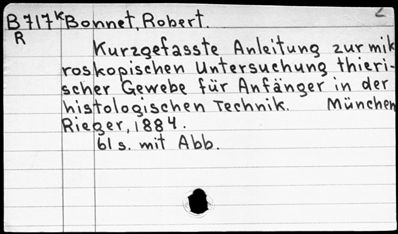 B717K Bonnet, Robert. 2
R
Kurzgefasste Anleitung zur mik
roskopischen Untersuchung thieri-
scher Gewebe für Anfänger in der
histologischen Technik. München
Rieger, 1884.
61 s. mit Abb.